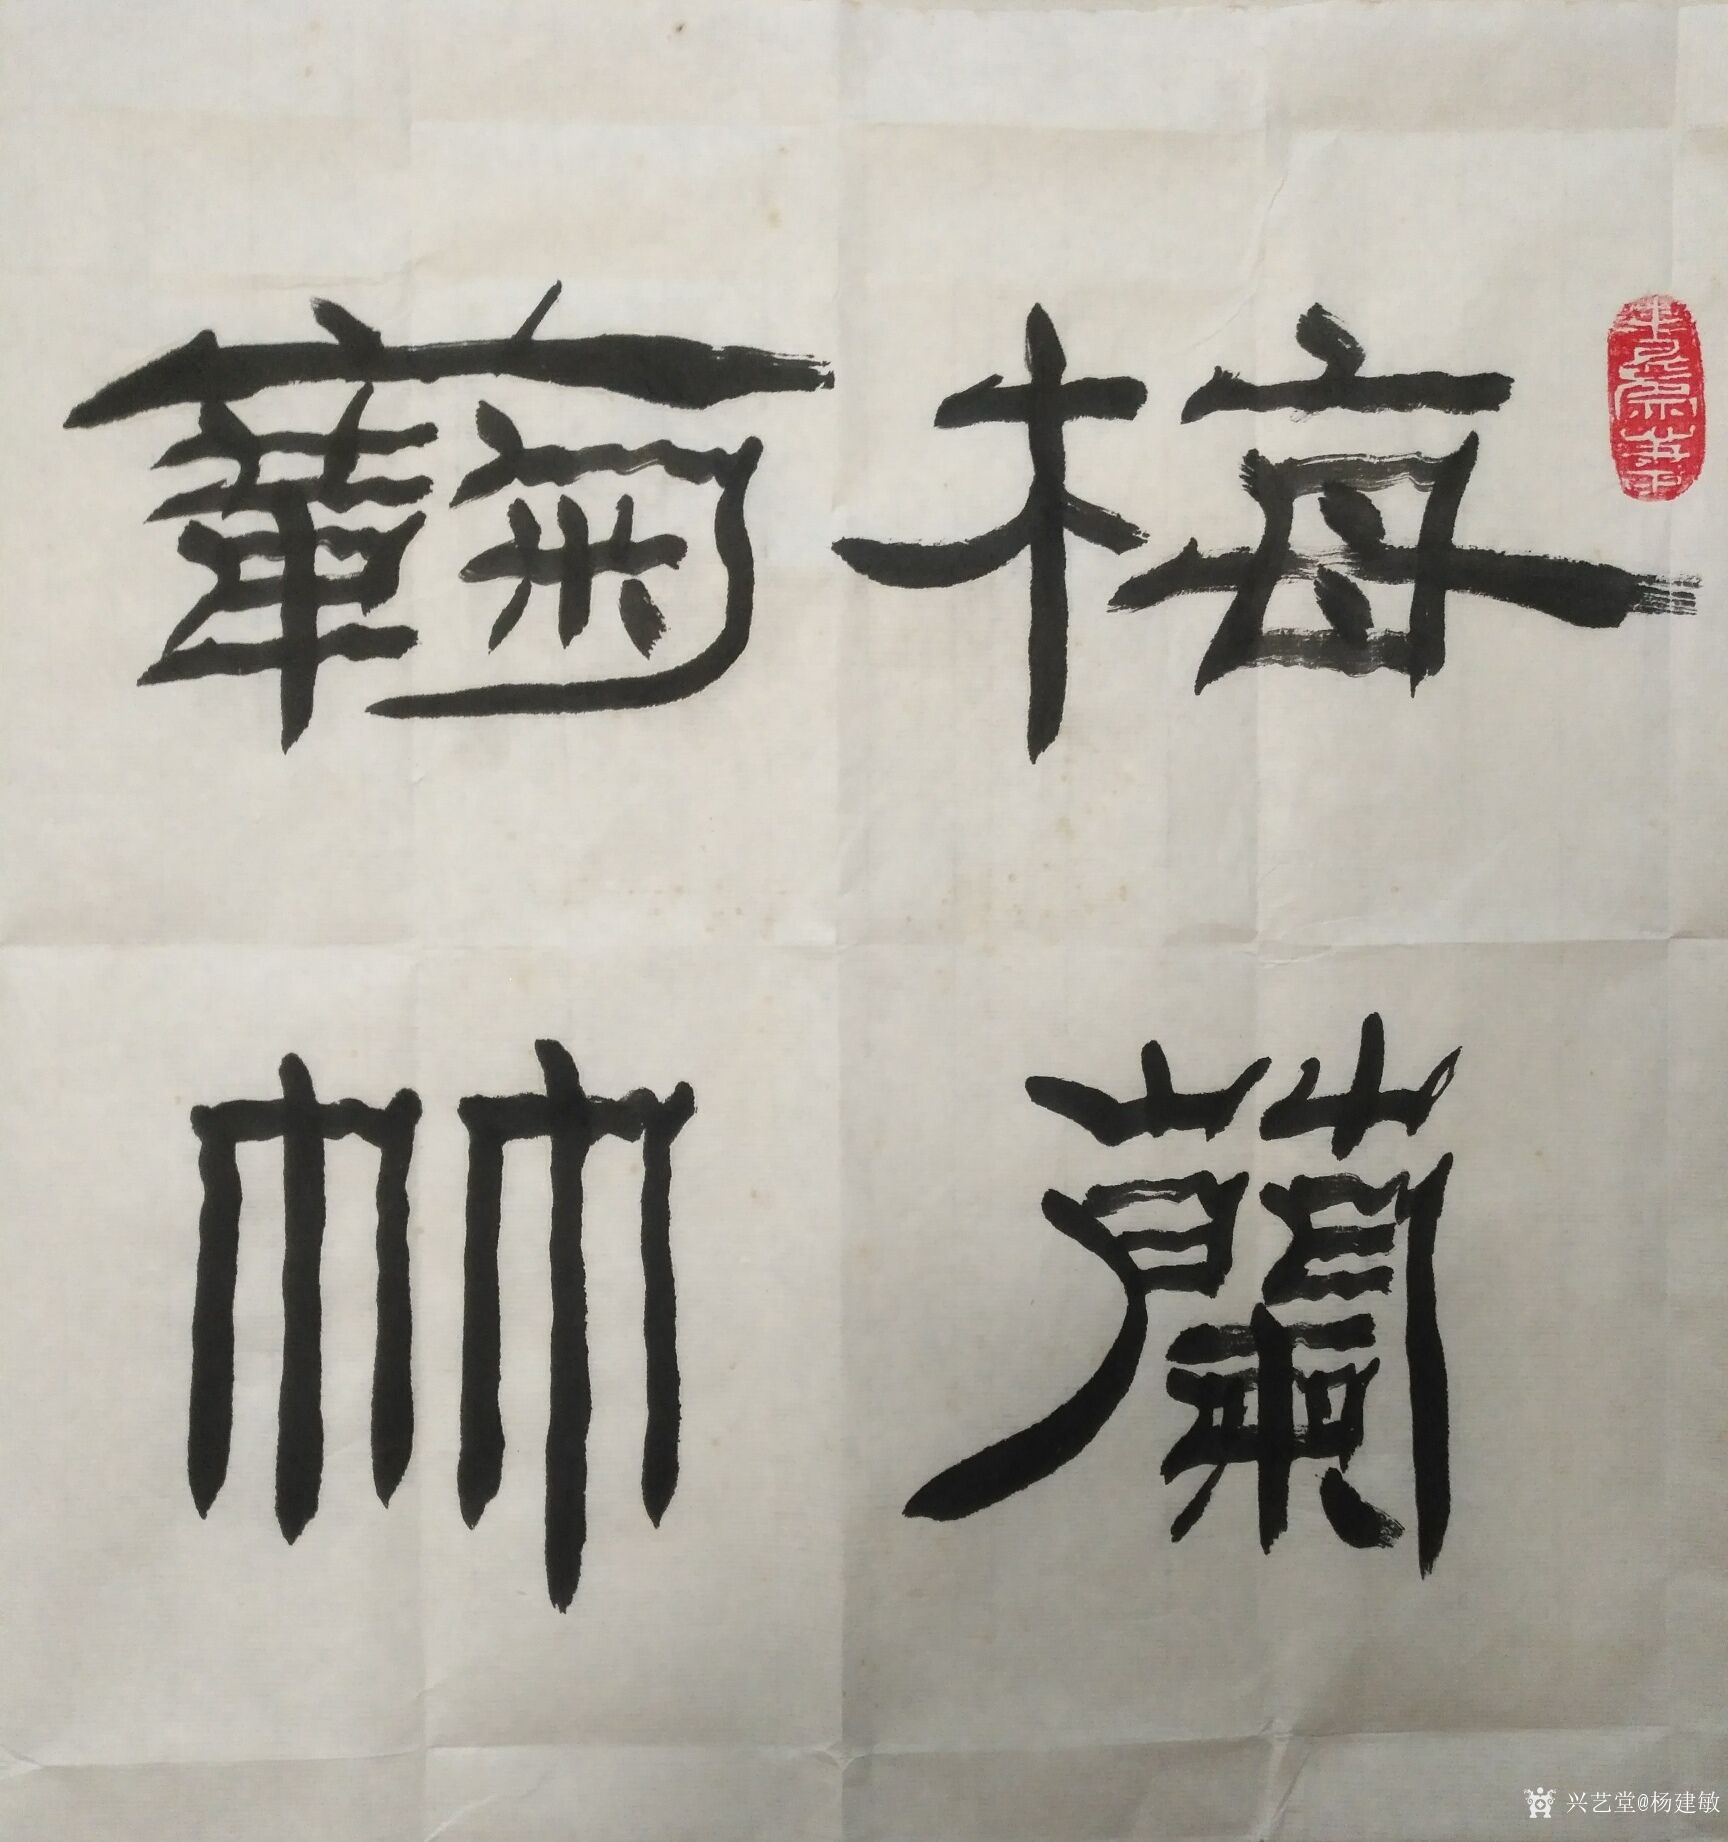 梅蘭
蘜竹
兴艺堂@杨建敏